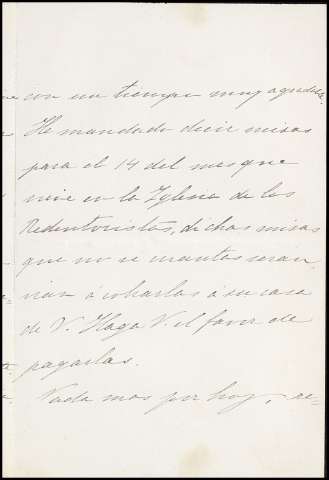 con un tiempo muy agradable
He mandado decir misas
para el 14 del mes que
viene en la Iglesia de los
Redentoristas, dichas misas
que no se cuantas seran
iran á cobarlas á su casa
de V. Haga V. el favor de
pagarlas.
Nada mas por hoy, re-